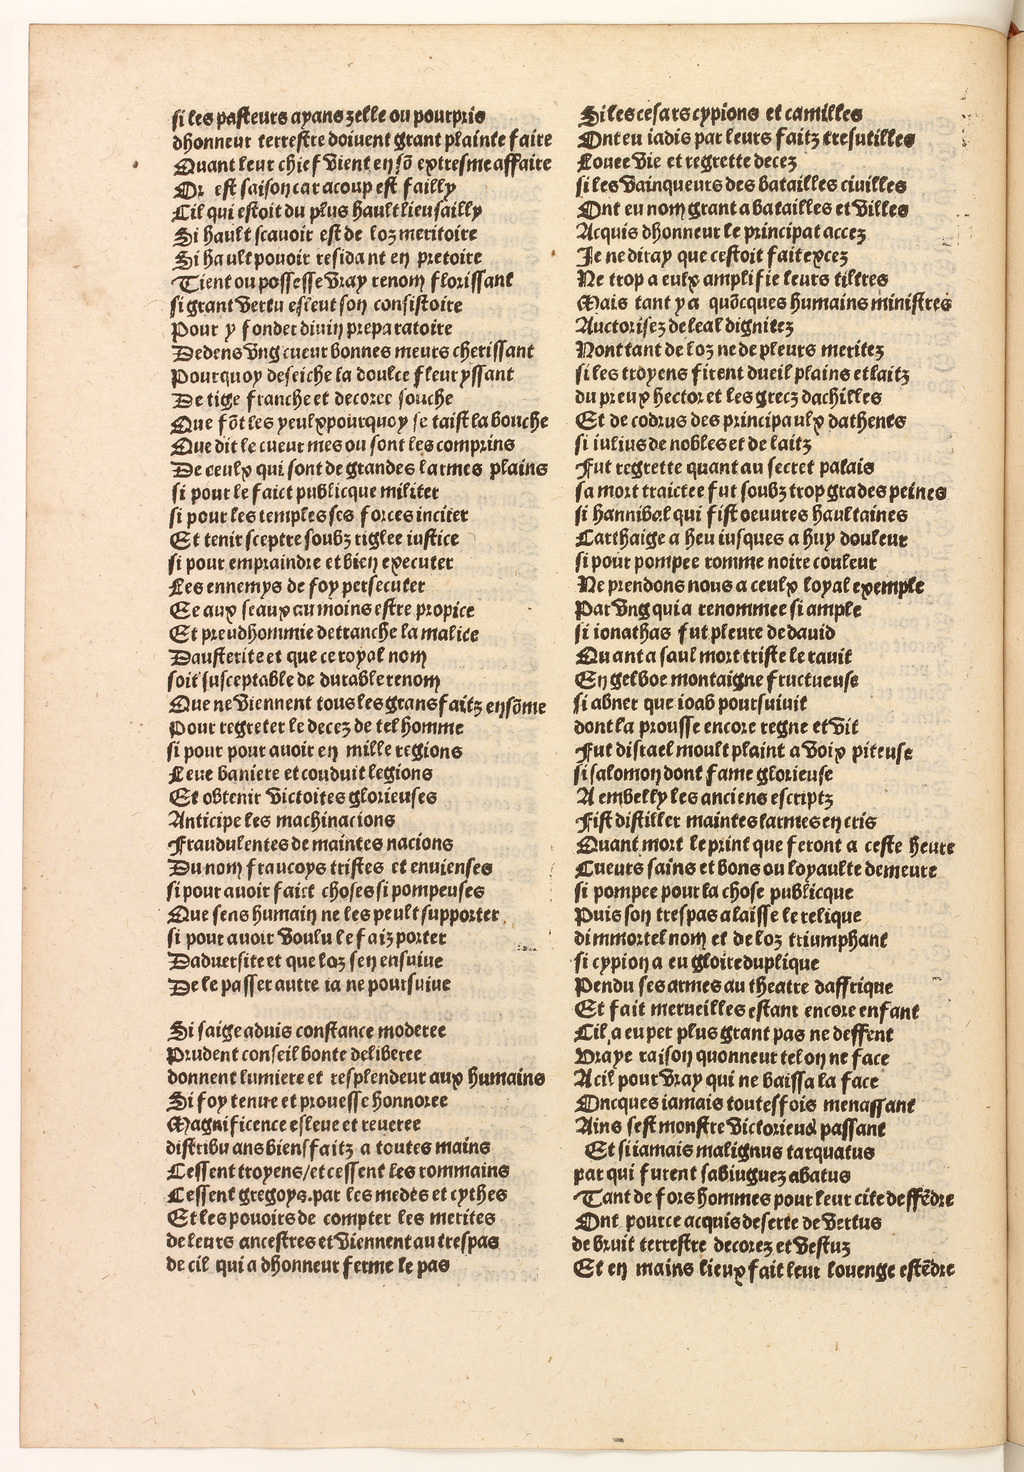 si les pasteurs ayans zelle ou pourpris
dhonneur terrestre doiuent grant plainte faire
Quant leur chief vient en sō extresme affaire
Or est saison car acoup est failly
Cil qui estoit du plus hault lieu sailly
Si hault scauoir est de loz meritoire
Si hault pouoir residant en pretoire
Tient ou possesse vray renom florissant
si grant vertu esleut son consistoire
Pour y fonder diuin preparatoire
Dedens vng cueur bonnes meurs cherissant
Pourquoy deseiche la doulce fleur yssant
De tige franche et decoree souche
Que fōt les yeulx pourquoy se taist la bouche
Que dit le cueur mes ou sont les comprins
De ceulx qui sont de grandes larmes plains
si pour le faict publicque militer
si pour les temples ses forces inciter
Et tenir sceptre soubz riglee iustice
si pour empraindre et bien executer
Les ennemys de foy persecuter
Ee aux seaux au moins estre propice
Et preudhommie detranche la malice
Dausterite et que ce royal nom
soit susceptable de durable renom
Que ne viennent tous les grans faitz en sōme
Pour regreter le decez de tel homme
si pour pour auoir en mille regions
Leue baniere et conduit legions
Et obtenir victoires glorieuses
Anticipe les machinacions
Fraudulentes de maintes nacions
Du nom francoys tristes et enuienses
si pour auoir faict choses si pompeuses
Que sens humain ne les peult supporter
si pour auoir voulu le faiz porter
Daduersite et que loz sen ensuiue
De le passer autre ia ne poursuiue
Si saige aduis constance moderee
Prudent conseil bonte deliberee
donnent lumiere et resplendeur aux humains
Si foy tenue et prouesse honnoree
Magnificence esleue et reueree
distribuans biensfaitz a toutes mains
Cessent troyens/et cessent les rommains
Cessent gregoys.par les medes et cythes
Et les pouoirs de compter les merites
de leurs ancestres et viennent au trespas
de cil qui a dhonneur ferme le pas
Si les cesars cypions et camilles
Ont eu iadis par leurs faitz tresutilles
Louee vie et regrette decez
si les vainqueurs des batailles ciuilles
Ont eu nom grant a batailles et villes
Acquis dhonneur le principat accez
Je ne diray que cestoit fait excez
Ne trop a eulx amplifie leurs tiltres
Mais tant y a quōcques humains ministres
Auctorisez de leal dignitez
Nont tant de loz ne de pleurs meritez
si les troyens firent dueil plains et laitz
du preux hector et les grecz dachilles
Et de codrus des principaulx dathenes
si iulius de nobles et de laitz
Fut regrette quant au secret palais
sa mort traictee fut soubz trop grades peines
si hannibal qui fist oeuures haultaines
Carthaige a heu iusques a huy douleur
si pour pompee romme noire couleur
Ne prendons nous a ceulx loyal exemple
Par vng qui a renommee si ample
si ionathas fut pleure de dauid
Quant a saul mort triste le rauit
En gelboe montaigne fructueuse
si abner que ioab poursuiuit
dont la prousse encore regne et vit
Fut disrael moult plaint a voix piteuse
si salomon dont fame glorieuse
A embelly les anciens escriptz
Fist distiller maintes larmes en cris
Quant mort le print que feront a ceste heure
Cueurs sains et bons ou loyaulte demeure
si pompee pour la chose publicque
Puis son trespas a laisse le relique
dimmortel nom et de loz triumphant
si cypion a eu gloire duplique
Pendu ses armes au theatre daffrique
Et fait merueilles estant encore enfant
Cil a eu per plus grant pas ne deffent
Vraye raison quonneur tel on ne face
A cil pour vray qui ne baissa la face
Oncques iamais toutesfois menassant
Ains sest monstre victorieux passant
Et si iamais malignus tarquatus
par qui furent sabiuguez abatus
Tant de fors hommes pour leur cite deffēdre
Ont pource acquis deserte de vertus
de bruit terrestre decorez et vestuz
Et en mains lieux fait leur louenge estēdre